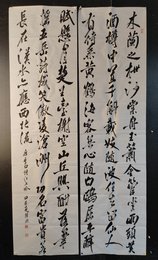 木蘭之枻沙棠舟玉簫金管坐兩頭美
酒樽中置千斛載妓隨波任去留仙人
有待乘黃鶴海客無心隨白鷗屈平辭
賦懸日月楚王臺榭空山丘興酣落筆
搖五岳詩成笑傲凌滄洲功名富貴若
長在漢水亦應西北流